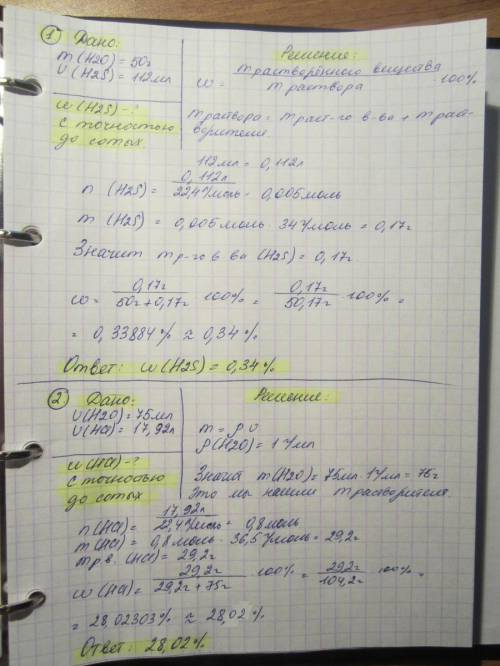 ① Дано:
m(H2O) = 50г
V(H2S) = 112мл
ω(H2S)-?
с точностью
до сотых.
Решение:
ω = m растворённого вещества / m раствора · 100%
m раствора = m раст-го в-ва + m раст-
ворителя.
112мл = 0,112л
n(H2S) = 0,112л / 22,4л/моль = 0,005моль
m(H2S) = 0,005моль · 34г/моль = 0,17г
Значит m р-го в ва (H2S) = 0,17г.
ω = 0,17г / 50г+0,17г · 100% = 0,17г / 50,17г · 100% =
= 0,33884% ≈ 0,34%
Ответ: ω(H2S) = 0,34%
② Дано:
V(H2O) = 75мл
V(HCl) = 17,92л
ω(HCl)-?
с точностью
до сотых
Решение:
m = ρ V
ρ(H2O) = 1г/мл
Значит m(H2O) = 75мл · 1г/мл = 75г
Это мы нашли m растворителя.
n(HCl) = 17,92л / 22,4л/моль = 0,8моль
m(HCl) = 0,8моль · 36,5г/моль = 29,2г
m р.в. (HCl) = 29,2г
ω(HCl) = 29,2г / 29,2г + 75г · 100% = 29,2г / 104,2г · 100% =
= 28,02303% ≈ 28,02%
Ответ: 28,02%